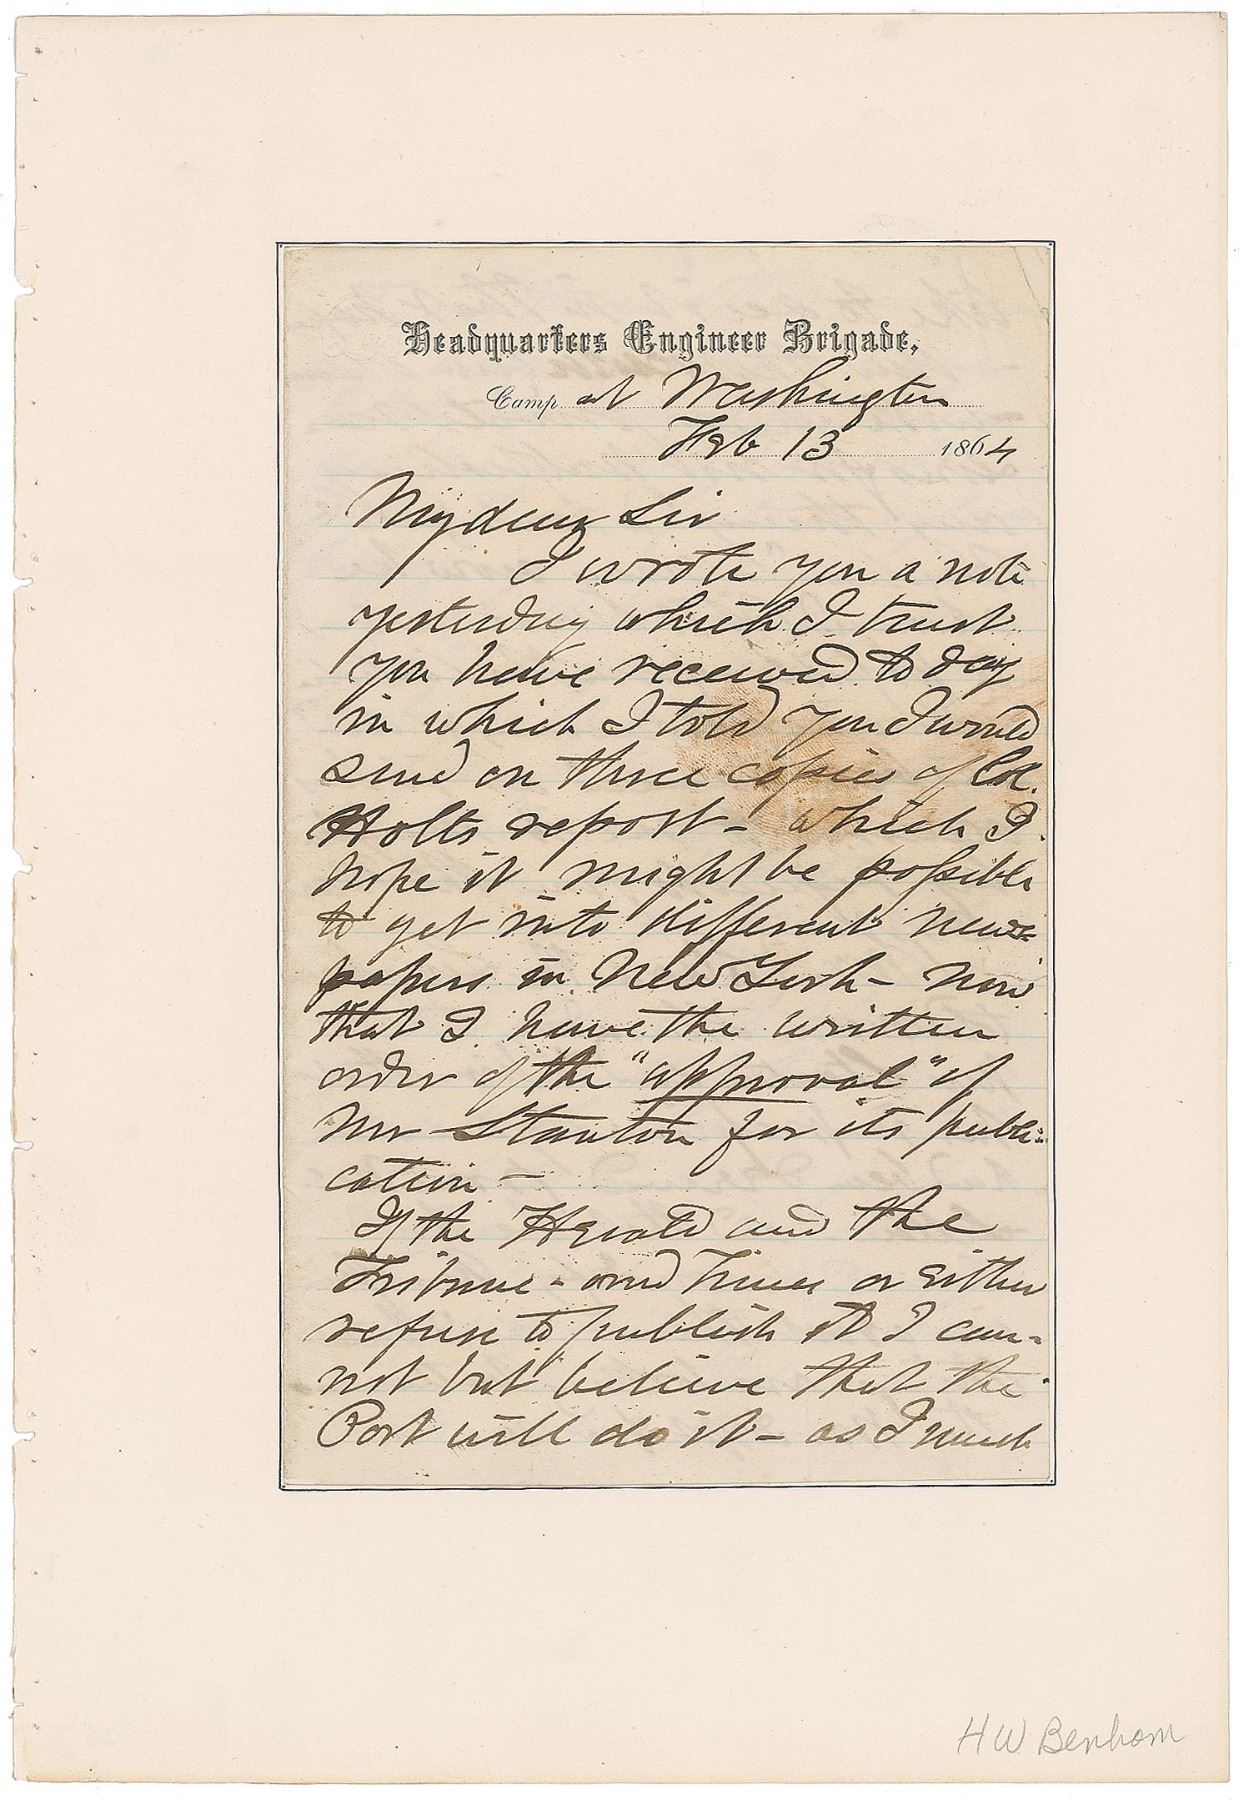 Headquarters Engineer Brigade,
Camp at Washington
Feb 13 1864
My dear Sir
I wrote you a note
yesterday which I trust
you have received to day
in which I told you I would
send on three copies of Col.
Holts report - which I
hope it might be possible
to get into different news=
papers in New York - now
that I have the written
order of the "approval" of
Mr Stanton for its publi-
cation -
If the Herald and the
Tribune - and Times or either
refuse to publish it I can-
not but believe that the
Post will do it - as I much
H W Benham